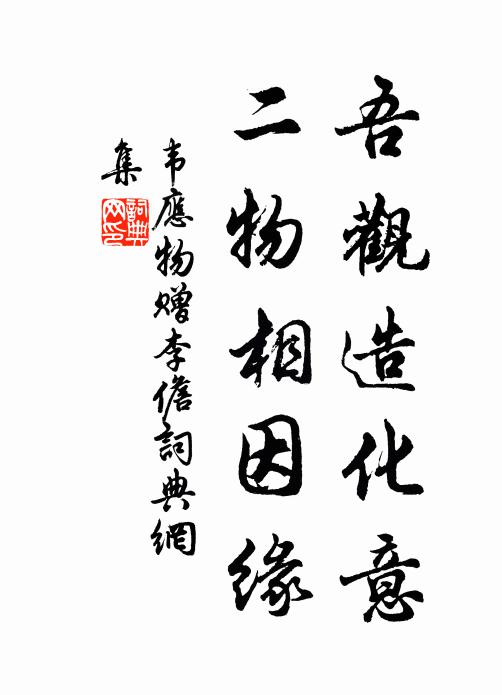 吾觀造化意
二物相因緣
韦應物赠李儋詞典網
集
詞典網印